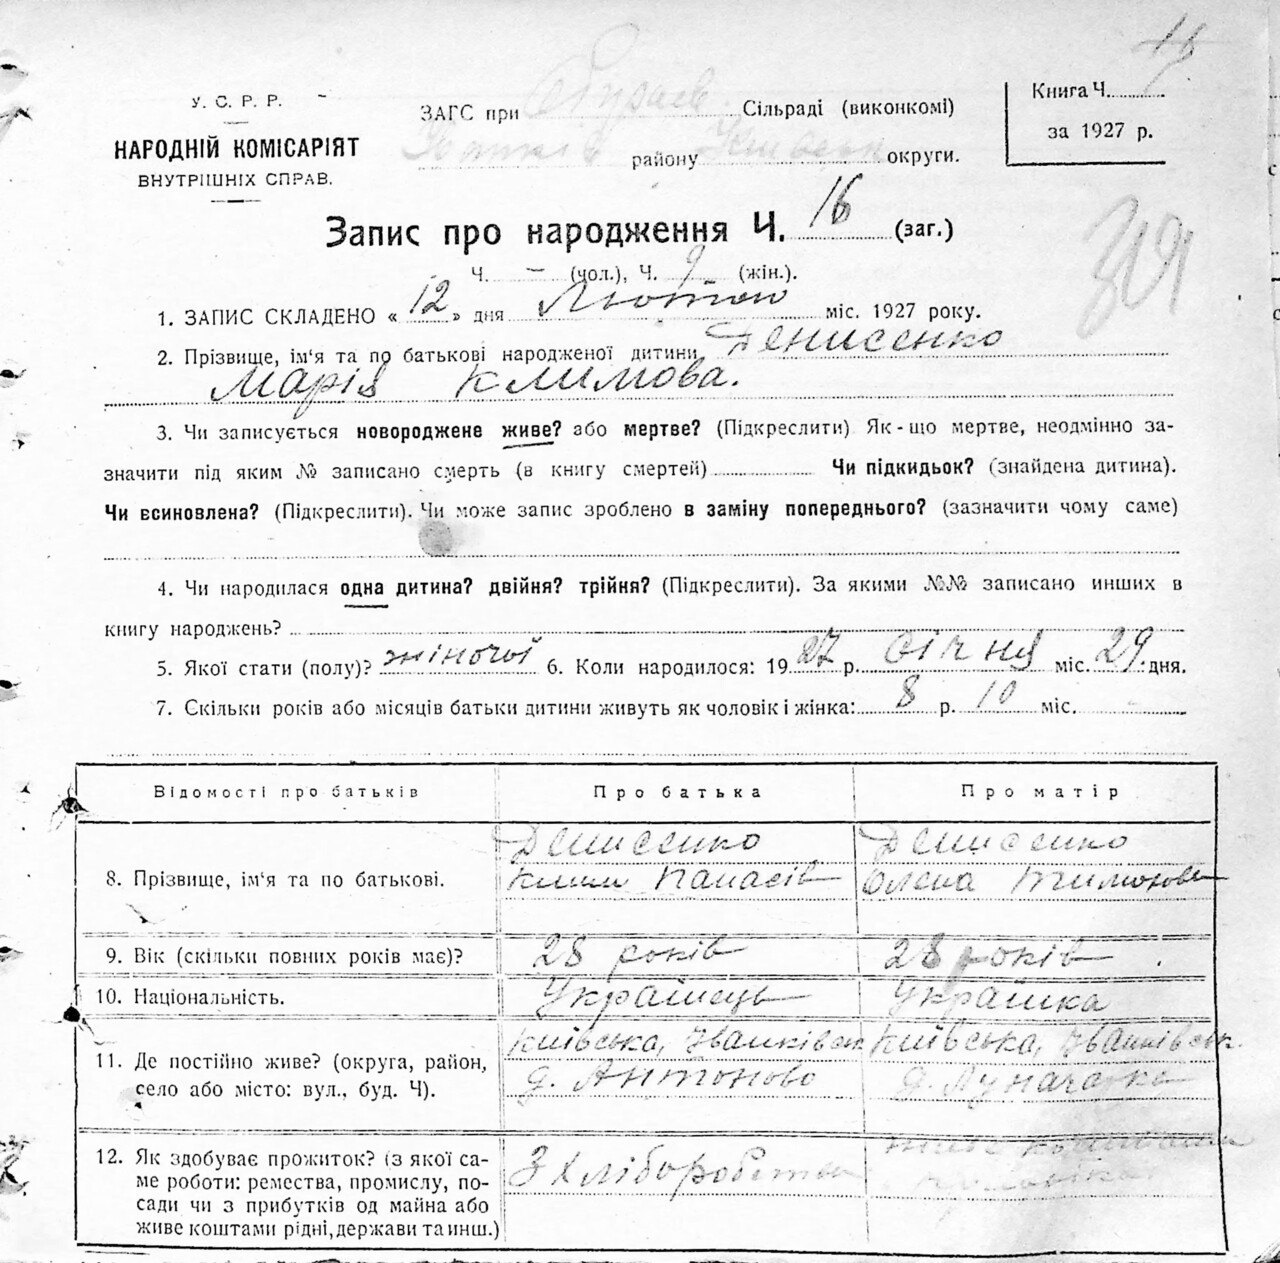 16
У. С. Р. Р.
НАРОДНІЙ КОМІСАРІЯТ
ВНУТРІШНІХ СПРАВ.
ЗАГС при Сільраді (виконкомі)
району округи.
Книга Ч.
за 1927 р.
Запис про народження Ч. 16 (заг.)
Ч. – (чол.), Ч. 9 (жін.).
1. ЗАПИС СКЛАДЕНО « 12 » дня Лютого міс. 1927 року.
2. Прізвище, ім'я та по батькові народженої дитини Денисенко
Марія Климова.
3. Чи записується новороджене живе? або мертве? (Підкреслити) Як-що мертве, неодмінно за-
значити під яким № записано смерть (в книгу смертей) Чи підкидьок? (знайдена дитина).
Чи всиновлена? (Підкреслити). Чи може запис зроблено в заміну попереднього? (зазначити чому саме)
4. Чи народилася одна дитина? двійня? трійня? (Підкреслити). За якими №№ записано инших в
книгу народжень?
5. Якої стати (полу)? жіночої 6. Коли народилося: 1927 р. січня міс. 29 дня.
7. Скільки років або місяців батьки дитини живуть як чоловік і жінка: 8 р. 10 міс.
Відомості про батьків Про батька Про матір
8. Прізвище, ім'я та по батькові. Денисенко Клим Панасів Денисенко Олена Тимохова
9. Вік (скільки повних років має)? 28 років 28 років
10. Національність. Українець Українка
11. Де постійно живе? (округа, район, Київська, Іванківськ Київська, Іванківськ.
село або місто: вул., буд. Ч). д. Антоново д. Луначарка
12. Як здобуває прожиток? (з якої са-
ме роботи: ремества, промислу, по- З хліборобства
сади чи з прибутків од майна або
живе коштами рідні, держави та инш.)